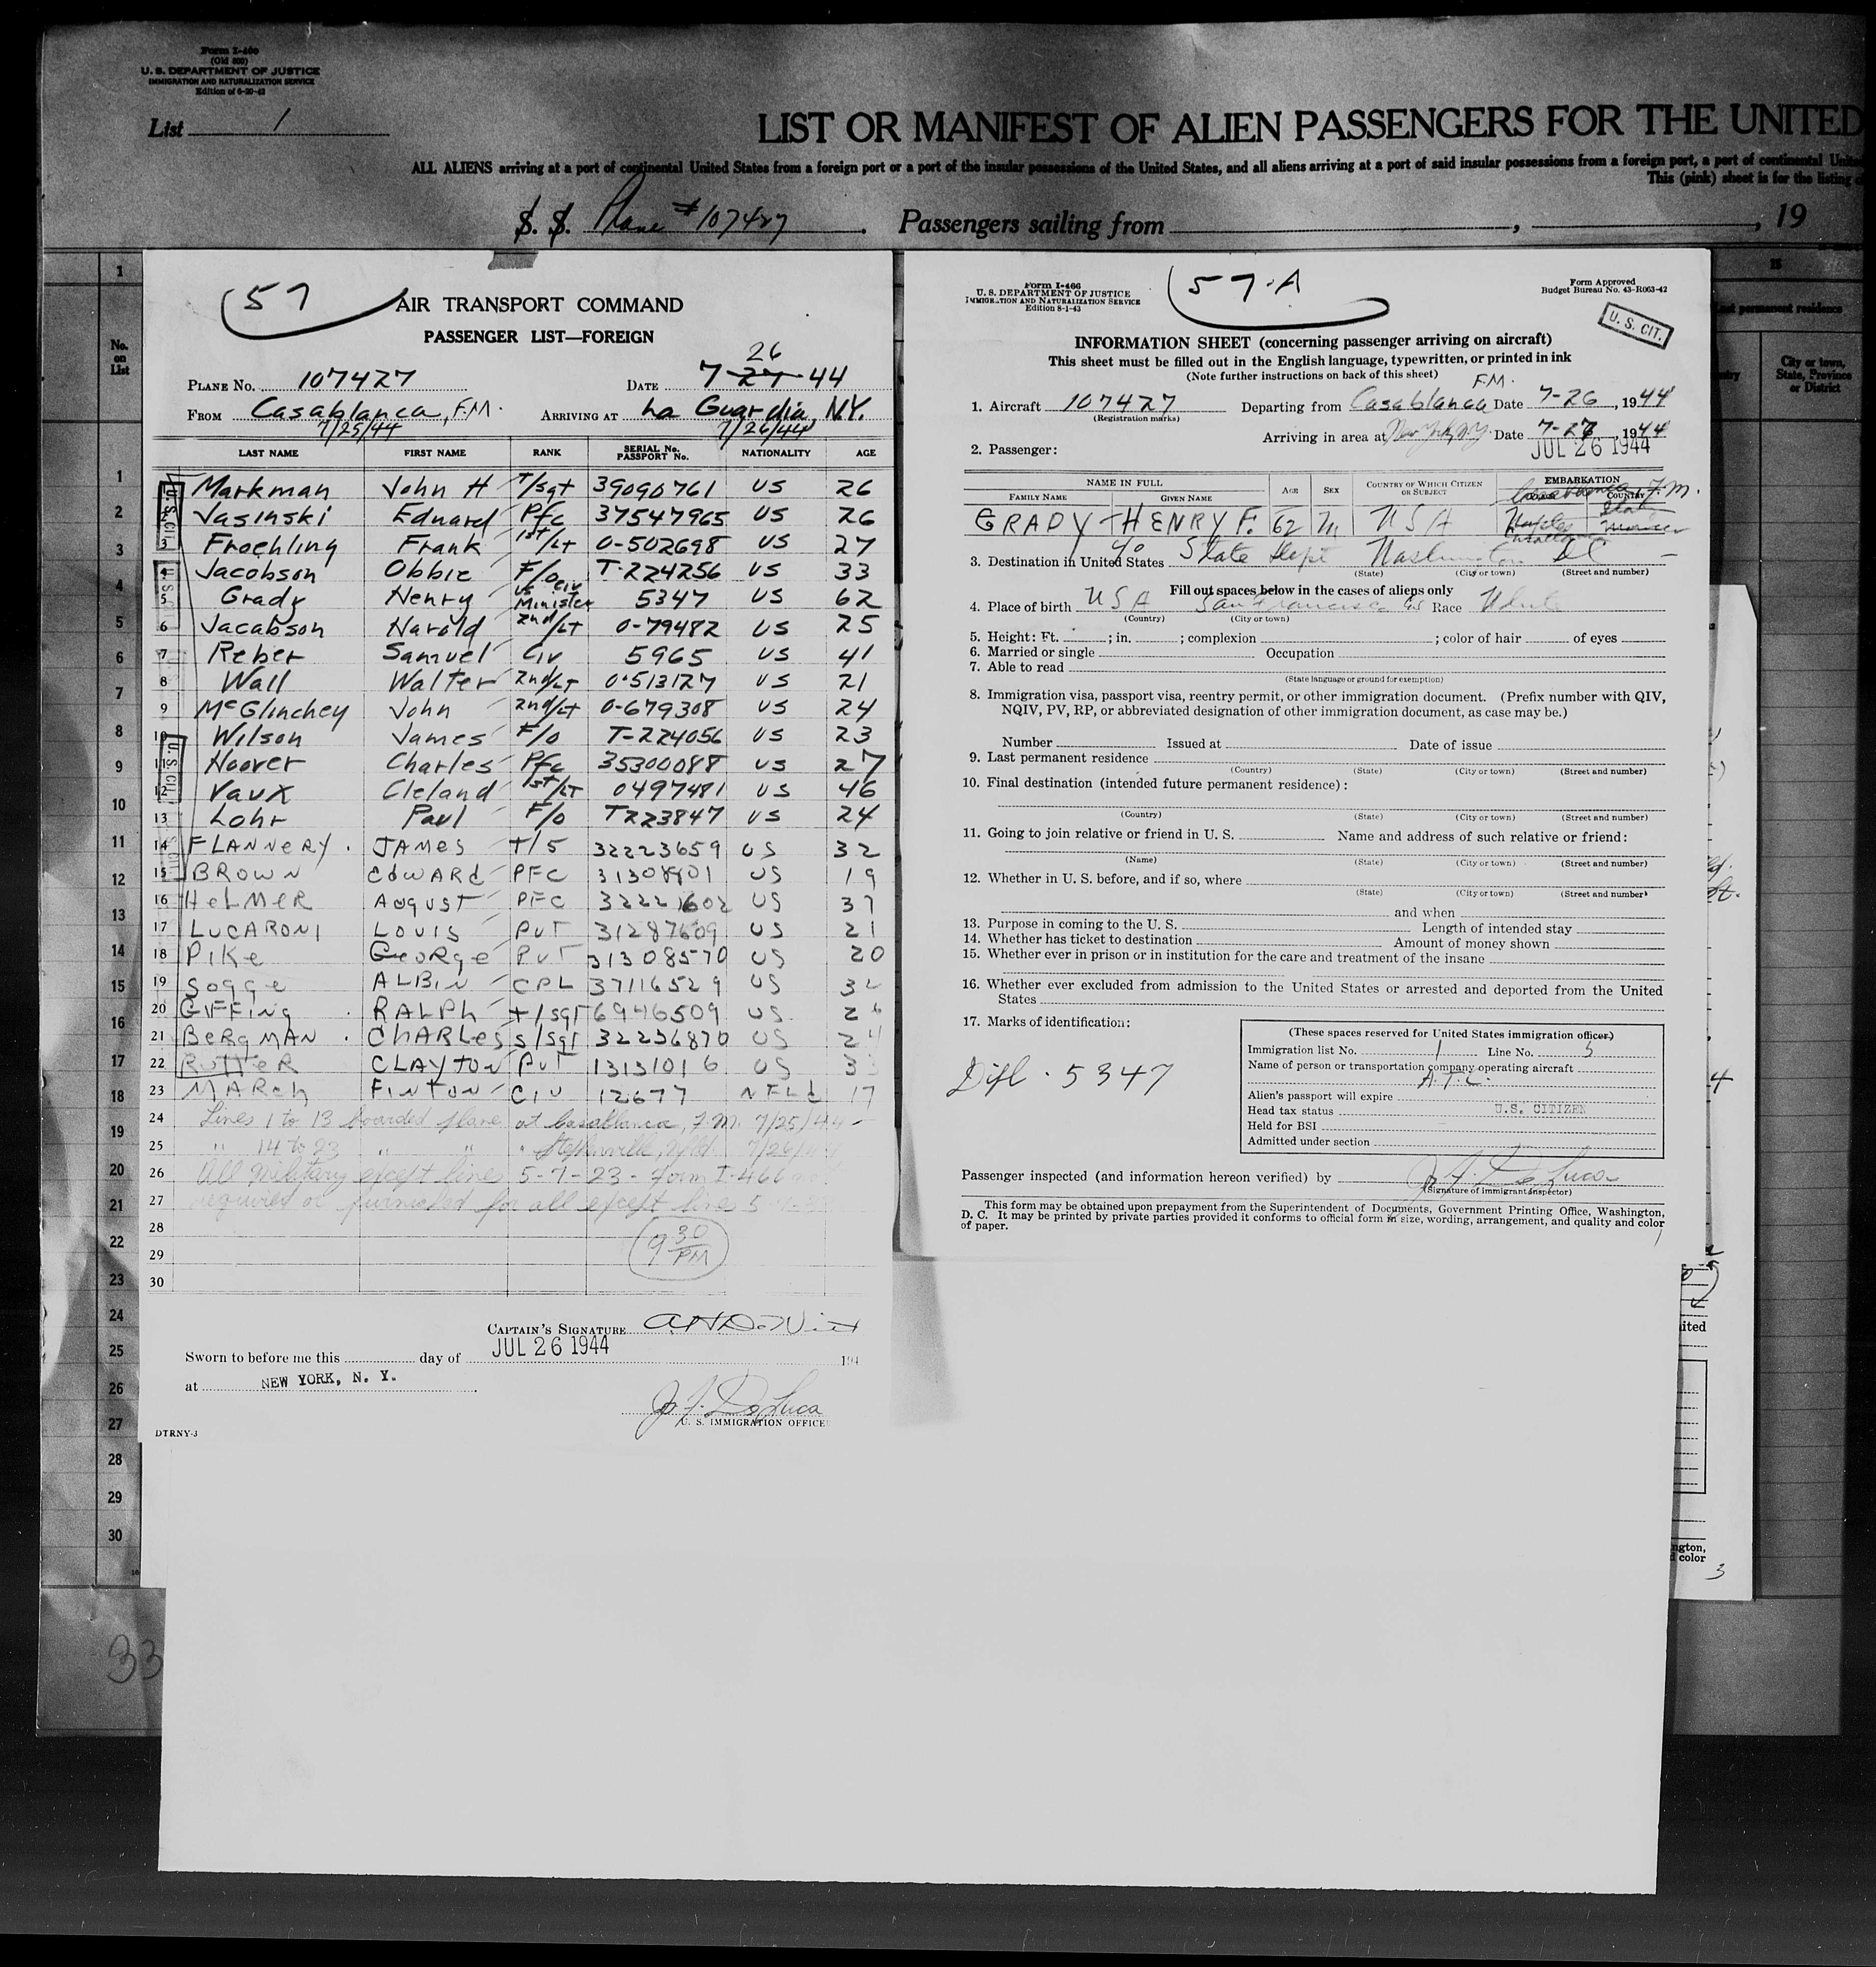 Form I-400
(Old 500)
U. S. DEPARTMENT OF JUSTICE
IMMIGRATION AND NATURALIZATION SERVICE
Edition of 6-20-42
List 1
LIST OR MANIFEST OF ALIEN PASSENGERS FOR THE UNITED
ALL ALIENS arriving at a port of continental United States from a foreign port or a port of the insular possessions of the United States, and all aliens arriving at a port of said insular possessions from a foreign port, a port of continental
This (pink) sheet is for the listing
S. S. Plane #107427 Passengers sailing from , , 19
No. on List
City or town, State, Province or District
57
AIR TRANSPORT COMMAND
PASSENGER LIST—FOREIGN
26
PLANE No. 107427 DATE 7-27-44
FROM Casablanca, F.M. ARRIVING AT La Guardia, N.Y.
7/25/44 7/26/44
LAST NAME FIRST NAME RANK SERIAL No. PASSPORT No. NATIONALITY AGE
1 Markman John H T/sgt 39090761 US 26
2 Jasinski Edward Pfc 37547965 US 26
3 Froehling Frank 1st/Lt O-502698 US 27
4 Jacobson Obbie F/o T-224256 US 33
5 Grady Henry US Civ Minister 5347 US 62
6 Jacobson Harold 2nd/Lt O-79482 US 25
7 Reber Samuel Civ 5965 US 41
8 Wall Walter 2nd/Lt O-513127 US 21
9 McGlinchey John 2nd/Lt O-679308 US 24
10 Wilson James F/o T-224056 US 23
11 Hoover Charles Pfc 35300088 US 27
12 Vaux Cleland 1st/Lt 0497481 US 46
13 Lohr Paul F/o T223847 US 24
14 FLANNERY. JAMES T/5 32223659 US 32
15 BROWN EdWARd PFC US 19
16 HeLMER AUgUST PFC US 37
17 LUCARONI LOUIS PVT 31287609 US 21
18 PIKe GeORge PVT 31308570 US 20
19 Sogge ALBIN CPL 37116529 US
20 RALPH T/SgT 6946509 US
21 BeRgMAN. CHARLES S/SgT 32236870 US
22 RUTTER CLAYTON PVT 13131016 US
23 MARCh FINTON CIV 12677 NFLd 17
24 Lines 1 to 13 boarded plane at Casablanca, F.M. 7/25/44
25 " 14 to 23 " " " Stephenville, Nfld.
26 All Military except lines 5-7-23 - Form I-466 not
27 required or furnished for all except lines 5-7-
28
29
30
9 30 PM
CAPTAIN'S SIGNATURE
Sworn to before me this day of JUL 26 1944 194
at NEW YORK, N. Y.
U. S. IMMIGRATION OFFICE
DTRNY-3
Form I-466
U. S. DEPARTMENT OF JUSTICE
IMMIGRATION AND NATURALIZATION SERVICE
Edition 8-1-43
57-A
Form Approved
Budget Bureau No. 43-R063-42
U. S. CIT.
INFORMATION SHEET (concerning passenger arriving on aircraft)
This sheet must be filled out in the English language, typewritten, or printed in ink
(Note further instructions on back of this sheet)
1. Aircraft 107427 Departing from Casablanca F.M. Date 7-26, 1944
(Registration marks)
Arriving in area at New York NY. Date 7-27 1944
2. Passenger: JUL 26 1944
NAME IN FULL AGE SEX COUNTRY OF WHICH CITIZEN OR SUBJECT EMBARKATION
FAMILY NAME GIVEN NAME COUNTRY
Casablanca, F.M.
GRADY HENRY F. 62 M USA Naples
3. Destination in United States c/o State Dept Washington DC
(State) (City or town) (Street and number)
Fill out spaces below in the cases of aliens only
4. Place of birth USA San Francisco Race White
(Country) (City or town)
5. Height: Ft. ; in. ; complexion ; color of hair of eyes
6. Married or single Occupation
7. Able to read
(State language or ground for exemption)
8. Immigration visa, passport visa, reentry permit, or other immigration document. (Prefix number with QIV,
NQIV, PV, RP, or abbreviated designation of other immigration document, as case may be.)
Number Issued at Date of issue
9. Last permanent residence
(Country) (State) (City or town) (Street and number)
10. Final destination (intended future permanent residence):
(Country) (State) (City or town) (Street and number)
11. Going to join relative or friend in U. S. Name and address of such relative or friend:
(Name) (State) (City or town) (Street and number)
12. Whether in U. S. before, and if so, where
(State) (City or town) (Street and number)
and when
13. Purpose in coming to the U. S. Length of intended stay
14. Whether has ticket to destination Amount of money shown
15. Whether ever in prison or in institution for the care and treatment of the insane
16. Whether ever excluded from admission to the United States or arrested and deported from the United
States
17. Marks of identification:
Dipl. 5347
(These spaces reserved for United States immigration officer)
Immigration list No. 1 Line No. 5
Name of person or transportation company operating aircraft
A.T.C.
Alien's passport will expire
Head tax status U.S. CITIZEN
Held for BSI
Admitted under section
Passenger inspected (and information hereon verified) by
(Signature of immigrant inspector)
This form may be obtained upon prepayment from the Superintendent of Documents, Government Printing Office, Washington,
D. C. It may be printed by private parties provided it conforms to official form in size, wording, arrangement, and quality and color
of paper.